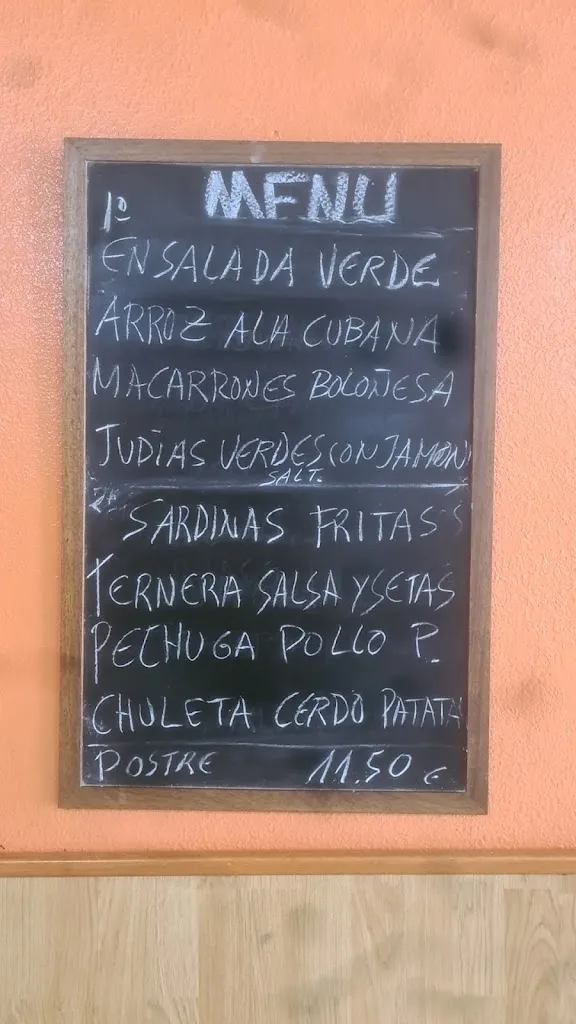 MENU
1º
ENSALADA VERDE
ARROZ A LA CUBANA
MACARRONES BOLOÑESA
JUDIAS VERDES CON JAMON
SALT.
2º
SARDINAS FRITAS
TERNERA SALSA Y SETAS
PECHUGA POLLO P.
CHULETA CERDO PATATA
POSTRE 11.50 €